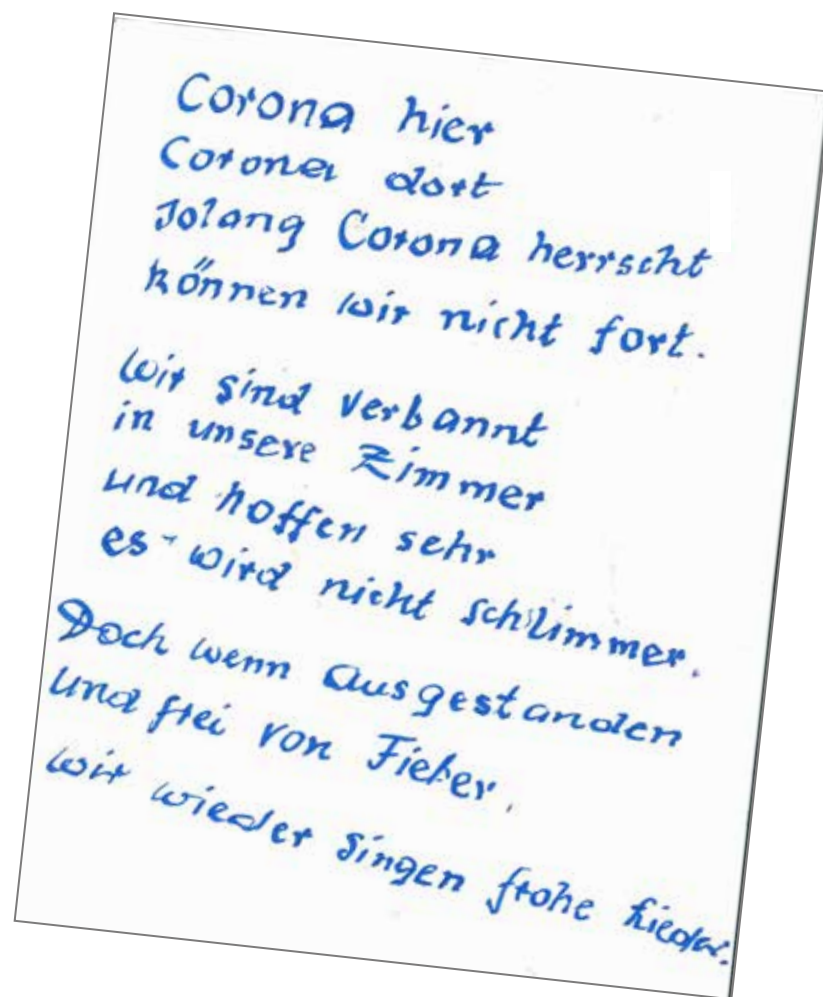 Corona hier
Corona dort
solang Corona herrscht
können wir nicht fort.
Wir sind verbannt
in unsere Zimmer
und hoffen sehr
es wird nicht schlimmer.
Doch wenn ausgestanden
und frei von Fieber.
wir wieder singen frohe Lieder.